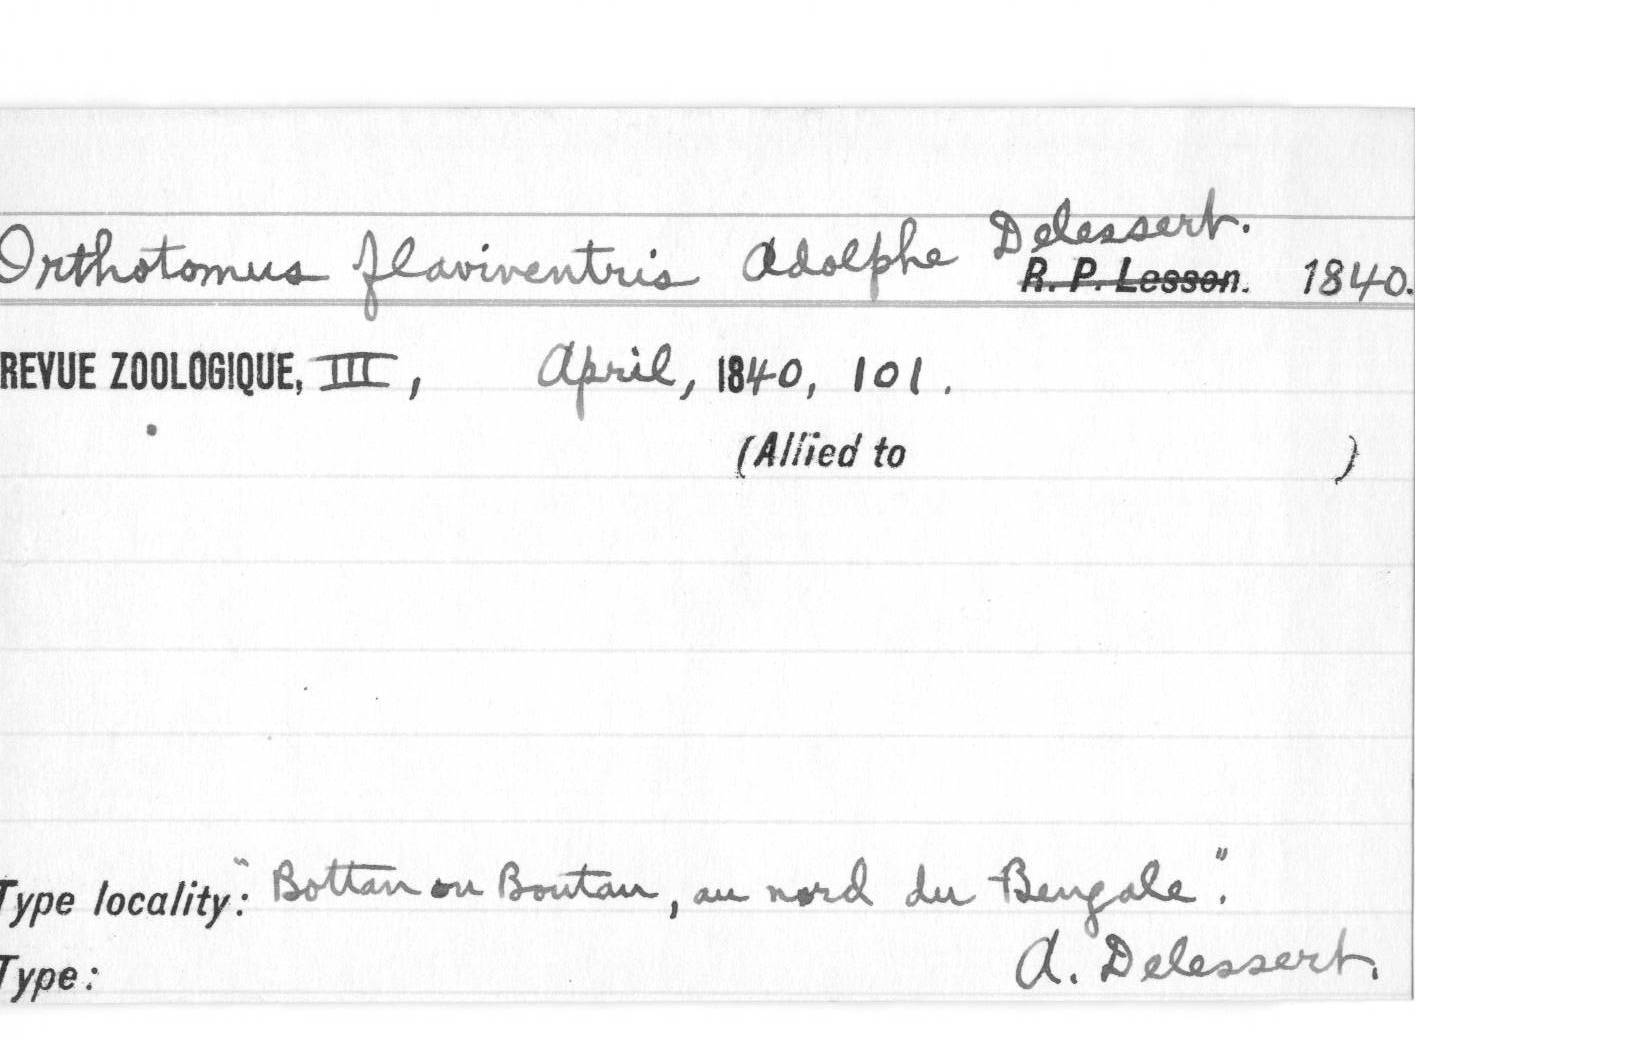 Orthotomus flaviventris Adolphe Delessert.
R. P. Lesson. 1840.
REVUE ZOOLOGIQUE, III, April, 1840, 101.
(Allied to )
Type locality: "Bottan ou Boutan, au nord du Bengale".
Type: A. Delessert.